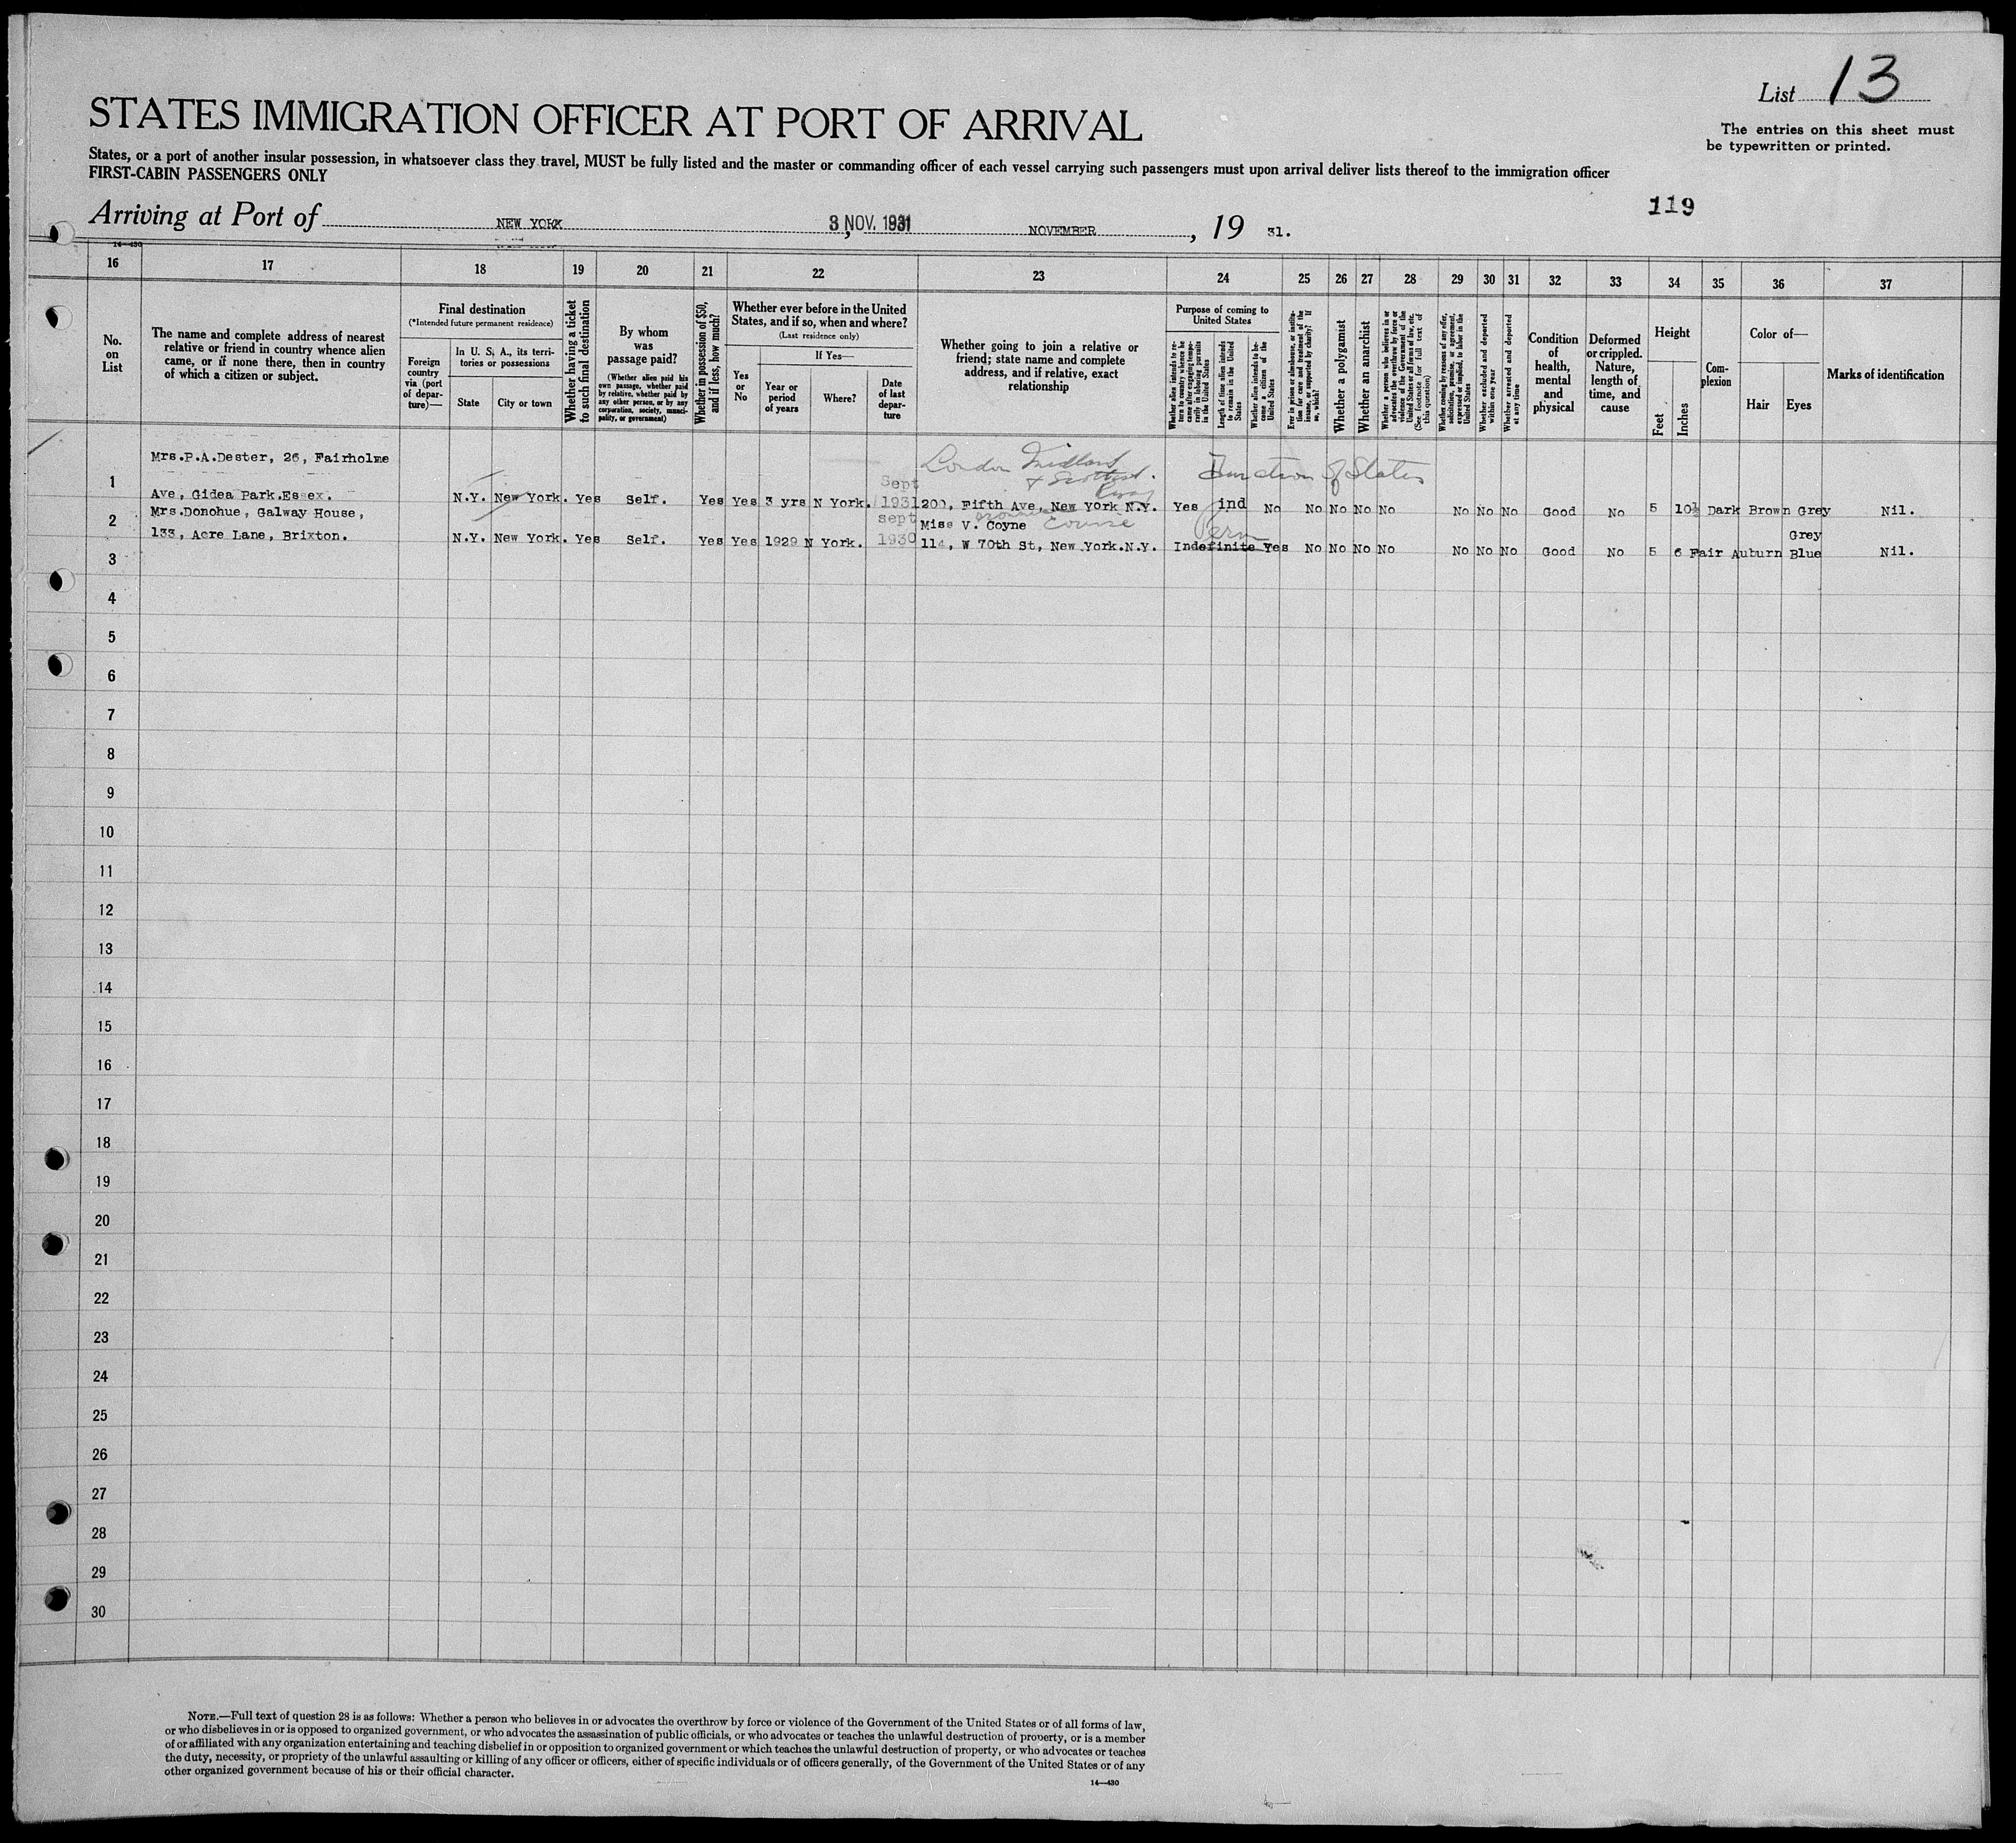 List 13
STATES IMMIGRATION OFFICER AT PORT OF ARRIVAL
The entries on this sheet must
be typewritten or printed.
States, or a port of another insular possession, in whatsoever class they travel, MUST be fully listed and the master or commanding officer of each vessel carrying such passengers must upon arrival deliver lists thereof to the immigration officer
FIRST-CABIN PASSENGERS ONLY
119
Arriving at Port of NEW YORK 3 NOV. 1931 NOVEMBER, 19 31.
14—430
16 17 18 19 20 21 22 23 24 25 26 27 28 29 30 31 32 33 34 35 36 37
No.
on
List
The name and complete address of nearest
relative or friend in country whence alien
came, or if none there, then in country
of which a citizen or subject.
Final destination
(*Intended future permanent residence)
Foreign
country
via (port
of depar-
ture)—
In U. S. A., its terri-
tories or possessions
State
City or town
Whether having a ticket
to such final destination
By whom
was
passage paid?
(Whether alien paid his
own passage, whether paid
by relative, whether paid by
any other person, or by any
corporation, society, munici-
pality, or government)
Whether in possession of $50,
and if less, how much?
Whether ever before in the United
States, and if so, when and where?
(Last residence only)
Yes
or
No
If Yes—
Year or
period
of years
Where?
Date
of last
depar-
ture
Whether going to join a relative or
friend; state name and complete
address, and if relative, exact
relationship
Purpose of coming to
United States
Whether alien intends to re-
turn to country whence he
came after engaging tempo-
rarily in laboring pursuits
in the United States
Length of time alien intends
to remain in the United
States
Whether alien intends to be-
come a citizen of the
United States
Ever in prison or almshouse, or institu-
tion for care and treatment of the
insane, or supported by charity? If
so, which?
Whether a polygamist
Whether an anarchist
Whether a person who believes in or
advocates the overthrow by force or
violence of the Government of the
United States or all forms of law, etc.
(See footnote for full text of
this question)
Whether coming by reasons of any offer,
solicitation, promise, or agreement,
expressed or implied, to labor in the
United States
Whether excluded and deported
within one year
Whether arrested and deported
at any time
Condition
of
health,
mental
and
physical
Deformed
or crippled.
Nature,
length of
time, and
cause
Height
Feet
Inches
Com-
plexion
Color of—
Hair
Eyes
Marks of identification
Mrs.P.A.Dester, 26, Fairholme London Midland
& Scottish. Junction of States
1 Sept
Ave, Gidea Park.Essex. N.Y. New York. Yes Self. Yes Yes 3 yrs N York. 1931 200, Fifth Ave, New York N.Y. Yes ind No No No No No No No No Good No 5 10½ Dark Brown Grey Nil.
2 Mrs.Donohue, Galway House, sept Miss V. Coyne Perm
133, Acre Lane, Brixton. N.Y. New York. Yes Self. Yes Yes 1929 N York. 1930 114, W 70th St, New York.N.Y. Indefinite Yes No No No No No No No Good No 5 6 Fair Auburn Grey Blue Nil.
3
4
5
6
7
8
9
10
11
12
13
14
15
16
17
18
19
20
21
22
23
24
25
26
27
28
29
30
NOTE.—Full text of question 28 is as follows: Whether a person who believes in or advocates the overthrow by force or violence of the Government of the United States or of all forms of law,
or who disbelieves in or is opposed to organized government, or who advocates the assassination of public officials, or who advocates or teaches the unlawful destruction of property, or is a member
of or affiliated with any organization entertaining and teaching disbelief in or opposition to organized government or which teaches the unlawful destruction of property, or who advocates or teaches
the duty, necessity, or propriety of the unlawful assaulting or killing of any officer or officers, either of specific individuals or of officers generally, of the Government of the United States or of any
other organized government because of his or their official character.
14—430